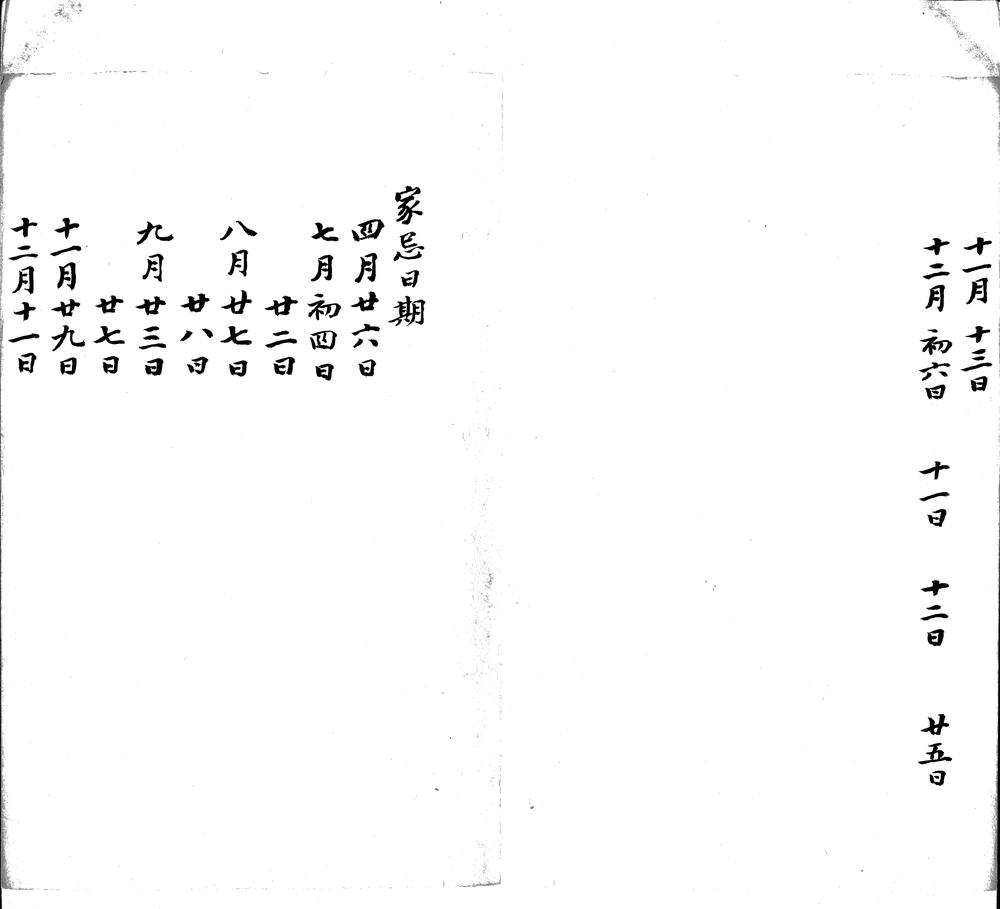 十一月 十三日
十二月 初六日 十一日 十二日 廿五日
家忌日期
四月廿六日
七月初四日
廿二日
八月廿七日
廿八日
九月廿三日
廿七日
十一月廿九日
十二月十一日